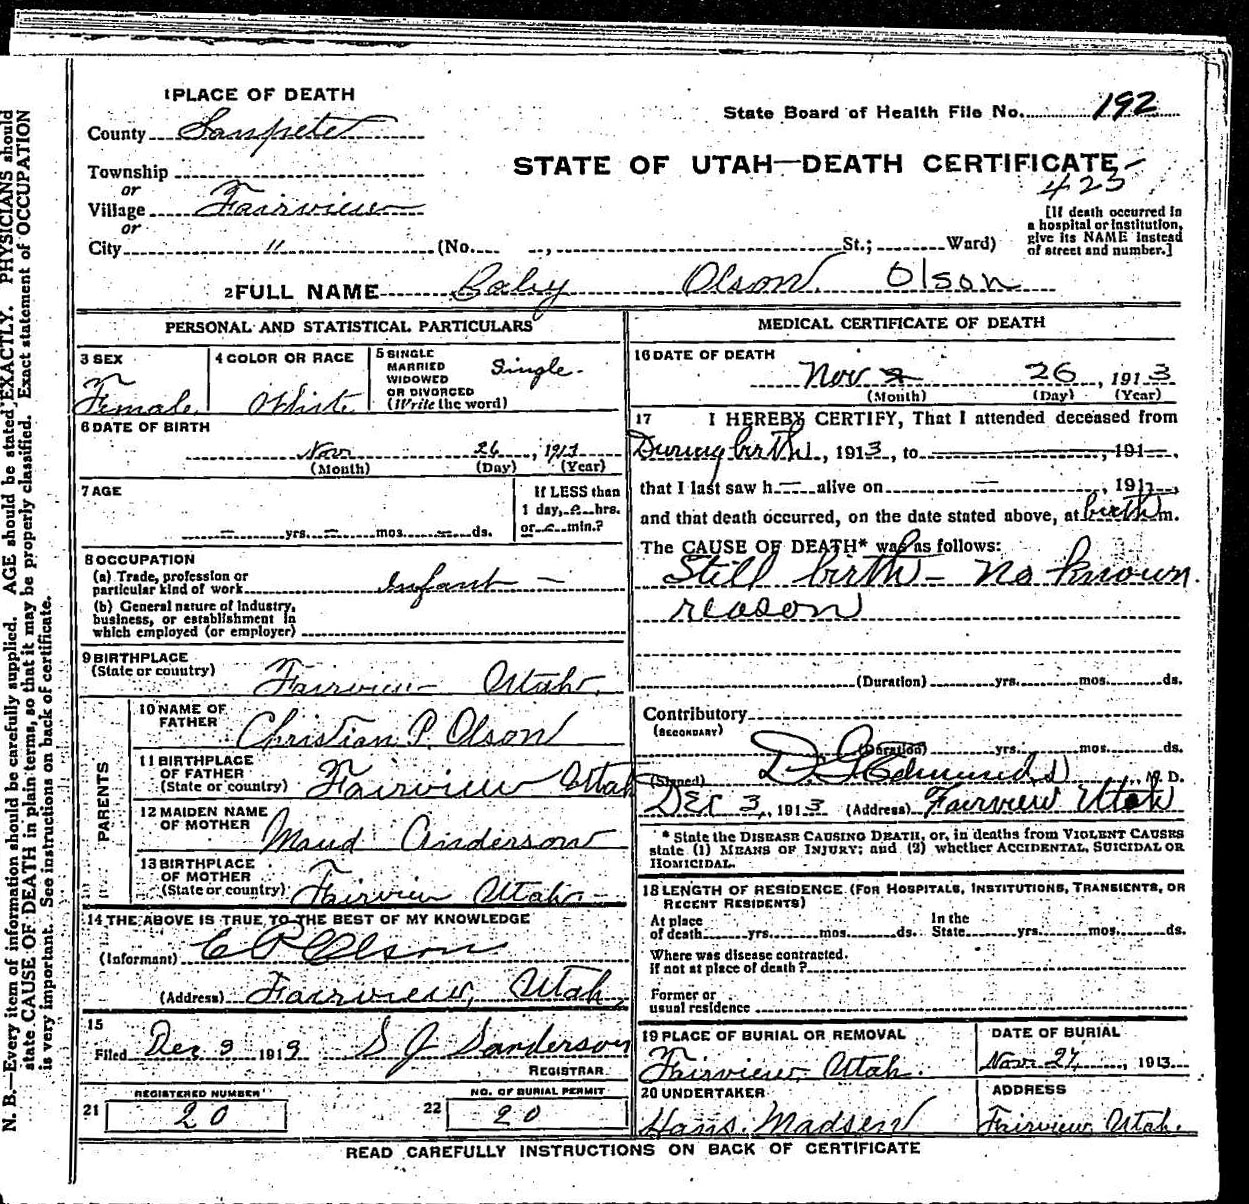 1 PLACE OF DEATH
County Sanpete
State Board of Health File No. 192
Township
or
Village Fairview
or
City "
(No. , St.; Ward)
STATE OF UTAH—DEATH CERTIFICATE
423
[If death occurred in
a hospital or institution,
give its NAME instead
of street and number.]
2 FULL NAME Baby Olson Olson
PERSONAL AND STATISTICAL PARTICULARS
3 SEX
Female
4 COLOR OR RACE
White
5 SINGLE
MARRIED
WIDOWED
OR DIVORCED
(Write the word)
Single
6 DATE OF BIRTH
Nov 26, 1913
(Month) (Day) (Year)
7 AGE
– yrs. – mos. – ds.
If LESS than
1 day, hrs.
or min.?
8 OCCUPATION
(a) Trade, profession or
particular kind of work Infant –
(b) General nature of Industry,
business, or establishment in
which employed (or employer)
9 BIRTHPLACE
(State or country)
Fairview Utah.
PARENTS
10 NAME OF
FATHER
Christian P. Olson
11 BIRTHPLACE
OF FATHER
(State or country)
Fairview Utah
12 MAIDEN NAME
OF MOTHER
Maud Anderson
13 BIRTHPLACE
OF MOTHER
(State or country)
Fairview Utah.
14 THE ABOVE IS TRUE TO THE BEST OF MY KNOWLEDGE
(Informant) C P Olson
(Address) Fairview, Utah,
15
Filed Dec 3 1913 S J Sanderson
REGISTRAR
REGISTERED NUMBER
21 20
NO. OF BURIAL PERMIT
22 20
MEDICAL CERTIFICATE OF DEATH
16 DATE OF DEATH
Nov 26, 1913
(Month) (Day) (Year)
17 I HEREBY CERTIFY, That I attended deceased from
During birth, 1913, to , 191 ,
that I last saw h– alive on – , 191 ,
and that death occurred, on the date stated above, at birth m.
The CAUSE OF DEATH* was as follows:
Still birth – No known
reason
(Duration) yrs. mos. ds.
Contributory
(SECONDARY)
(Duration) yrs. mos. ds.
(Signed) Edmunds, M. D.
Dec 3, 1913 (Address) Fairview Utah
* State the DISEASE CAUSING DEATH, or, in deaths from VIOLENT CAUSES
state (1) MEANS OF INJURY; and (2) whether ACCIDENTAL, SUICIDAL OR
HOMICIDAL.
18 LENGTH OF RESIDENCE (FOR HOSPITALS, INSTITUTIONS, TRANSIENTS, OR
RECENT RESIDENTS)
At place
of death yrs. mos. ds.
In the
State yrs. mos. ds.
Where was disease contracted.
If not at place of death?
Former or
usual residence
19 PLACE OF BURIAL OR REMOVAL
Fairview Utah.
DATE OF BURIAL
Nov. 27, 1913
20 UNDERTAKER
Hans Madsen
ADDRESS
Fairview Utah.
READ CAREFULLY INSTRUCTIONS ON BACK OF CERTIFICATE
N. B.—Every item of information should be carefully supplied. AGE should be stated EXACTLY. PHYSICIANS should
state CAUSE OF DEATH in plain terms, so that it may be properly classified. Exact statement of OCCUPATION
is very important. See instructions on back of certificate.